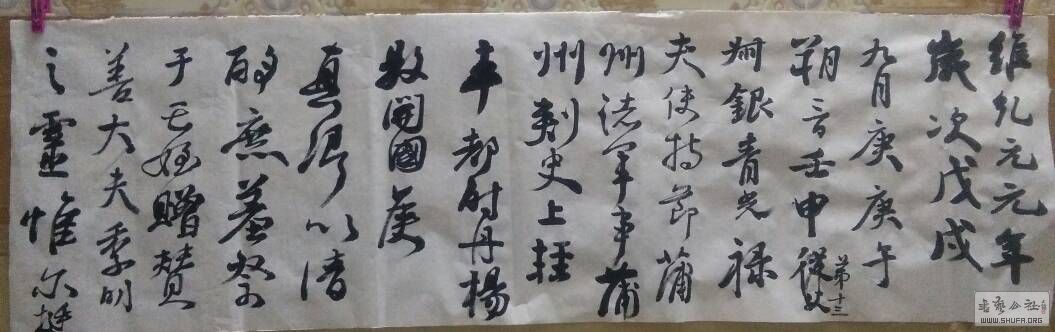 維乾元元年
歲次戊戌
九月庚庚午
朔三日壬申從父
第十三
叔銀青光祿
夫使持節蒲
州諸軍事蒲
州刺史上輕
車都尉丹楊
縣開國侯
真卿以清
酌庶羞祭
于亡姪贈贊
善大夫季明
之靈惟爾挺
书艺公社
WWW.SHUFA.ORG